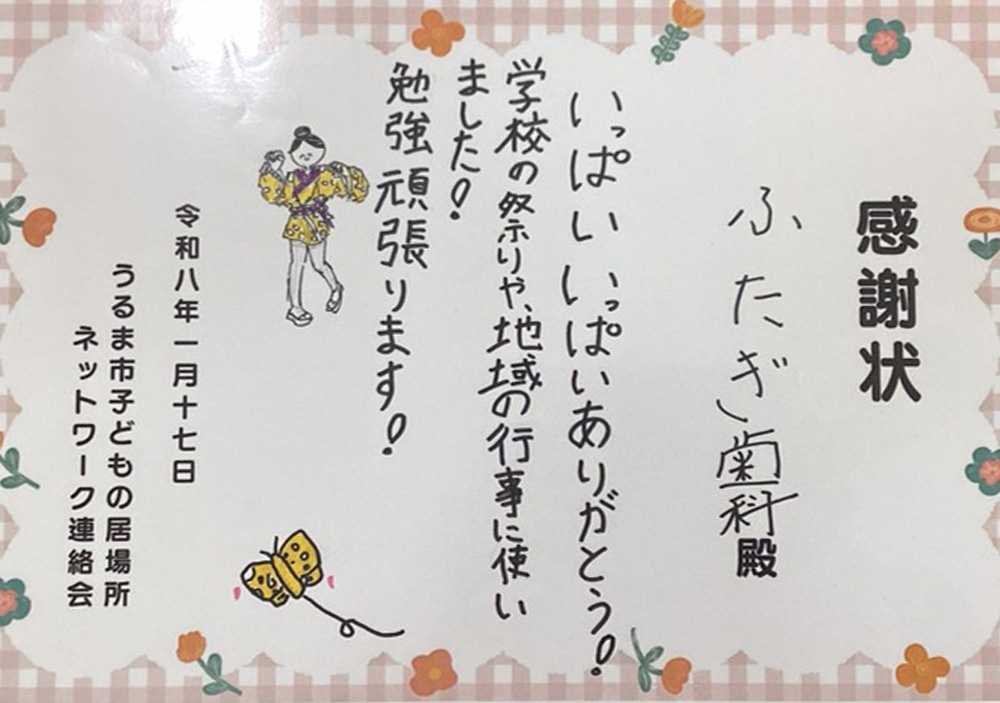 感謝状
ふたぎ歯科殿
いっぱいいっぱいありがとう!
学校の祭りや、地域の行事に使い
ました!
勉強頑張ります!
令和八年一月十七日
うるま市子どもの居場所
ネットワーク連絡会